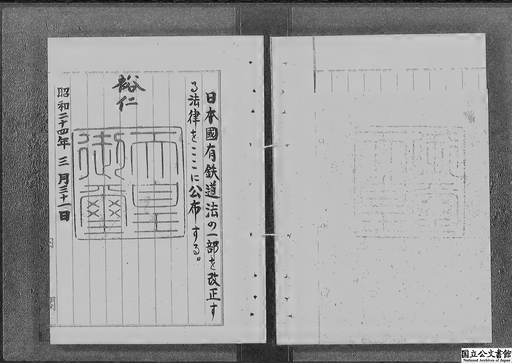 日本國有鉄道法の一部を改正す
る法律をここに公布する。
裕仁
天皇
御璽
昭和二十四年三月三十一日
内閣
国立公文書館
National Archives of Japan